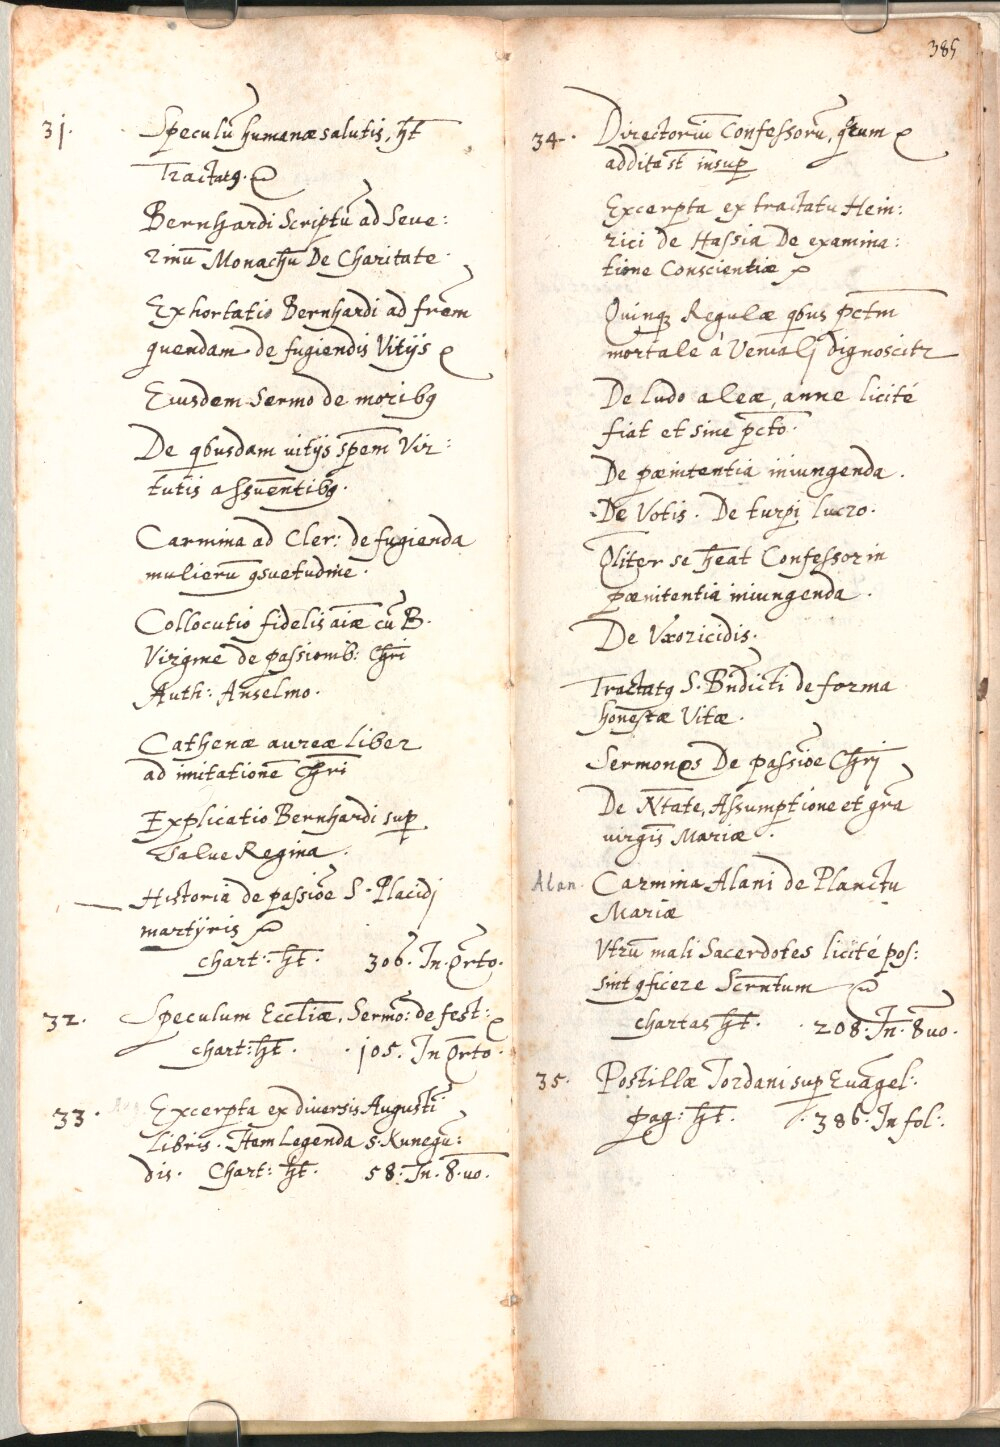 31. Speculū humanæ salutis, ht̄
Tractatꝯ.
Bernhardi Scriptū ad Seve:
rinū Monachū De Charitate.
Exhortatio Bernhardi ad frēm
quendam de fugiendis Vitijs
Eiusdem Sermo de moribꝯ
De qbusdam uitijs spēm Vir:
tutis assuentibꝯ.
Carmina ad Cler: de fugienda
mulierū ꝯsuetudine.
Collocutio fidelis aīæ cū B.
Virgine de passionib: Chrī
Auth: Anselmo.
Cathenæ aureæ liber
ad imitationē Chrī
Explicatio Bernhardi sup
Salve Regina.
Historia de passiōe S. Placidj
martyris
chart: ht̄. 306. In Qrto.
32. Speculum Eccliæ, Sermo: de fest:
chart: ht̄. 105. In Qrto.
33. Excerpta ex diversis Augusti
libris. Item Legenda S. Kunegū:
dis. Chart: ht̄. 58. In. 8.uo.
385
34. Directoriū Confessorū,
addita st̄ insup
Excerpta ex tractatu Hein:
rici de Hassia De examina:
tione Conscientiæ
Quinqꝫ Regulæ qbus pctm̄
mortale à Venialj dignoscitr
De ludo aleæ, anne licité
fiat et sine pctō.
De pænitentia iniungenda.
De Votis. De turpi lucro.
Qliter se heāt Confessor in
pænitentia iniungenda.
De Uxoricidis.
Tractatꝯ S. Bndicti de forma
honestæ Vitæ.
Sermones De passiōe Chrj
De Ntāte, Assumptione et grā
virgīs Mariæ.
Alan. Carmina Alani de Planctu
Mariæ
Utrū mali Sacerdotes licité pos:
sint ꝯficere Scrntum
chartas ht̄. 208. In. 8uo.
35. Postillæ Jordani sup Evāgel:.
pag: ht̄. 386. In fol:.